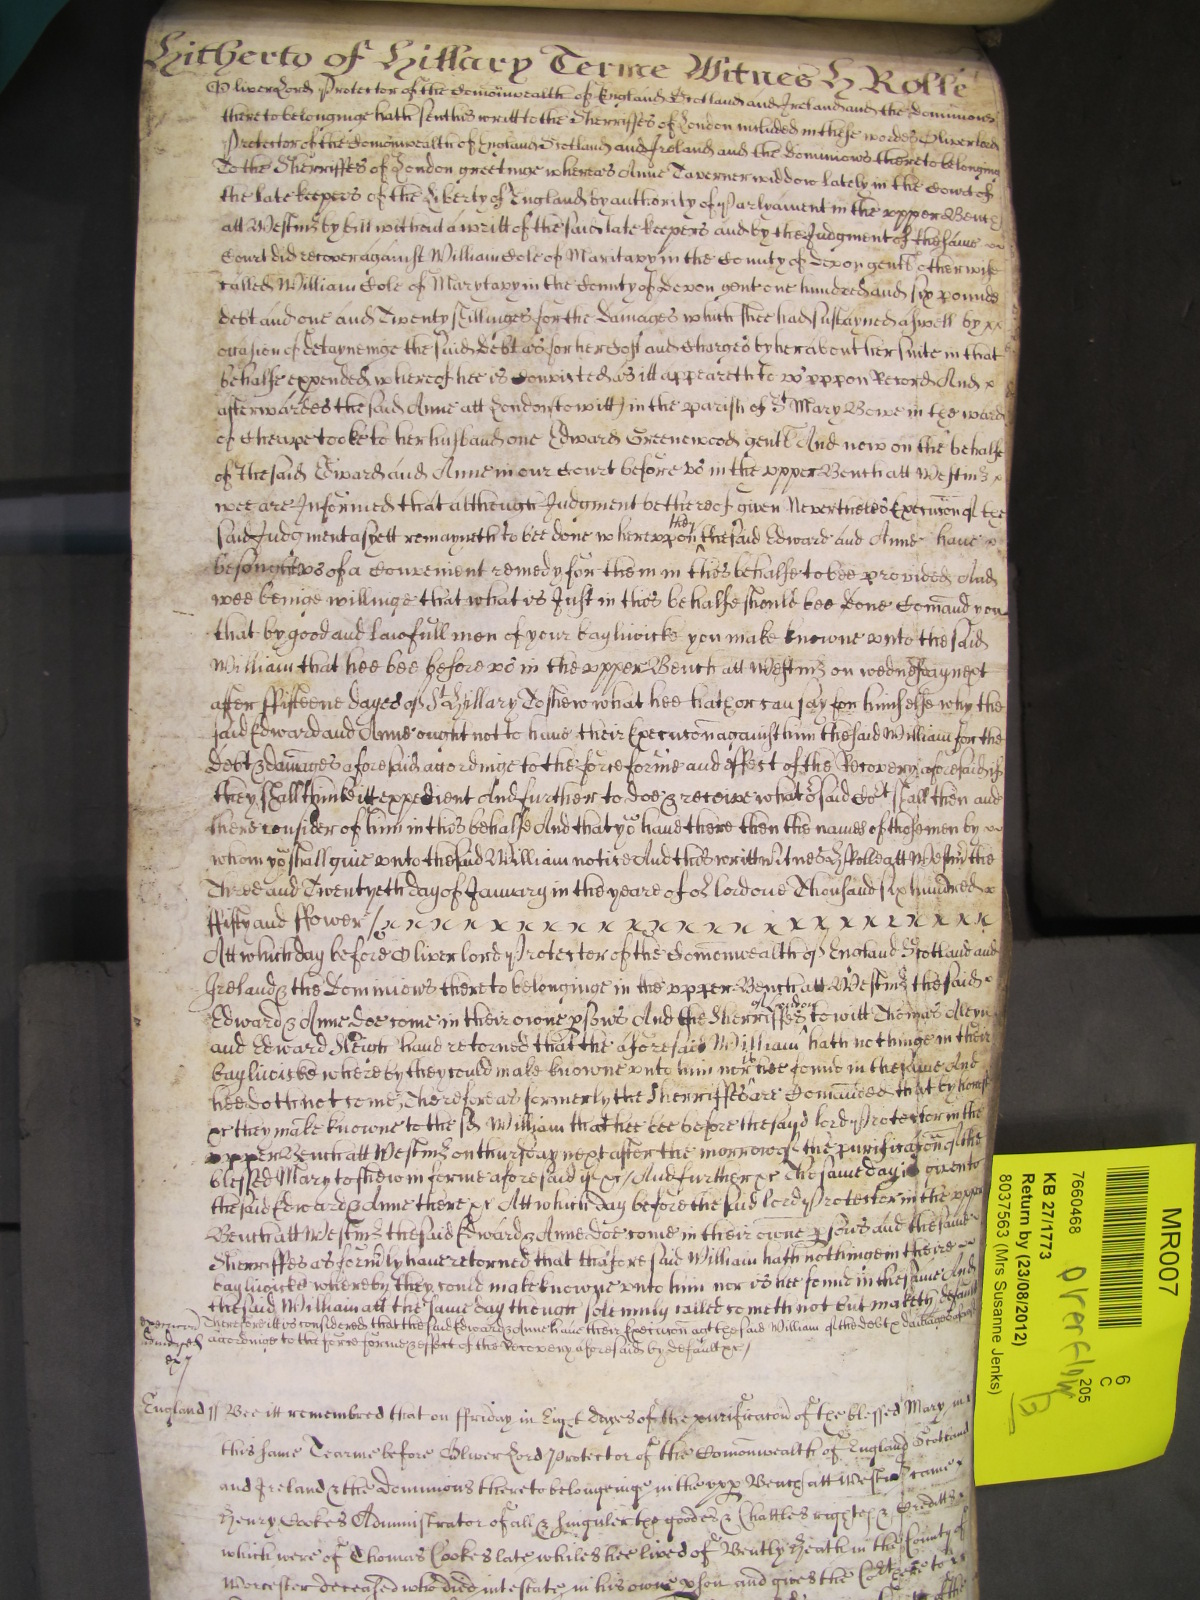 Hitherto of Hillary Terme Witnes H Rolle
Oliver Lord Protector of the Comonwealth of England Scotland and Ireland and the dominions
thereto belonginge hath sent his writt to the Sherriffes of London included in these wordes Oliver lord
Protector of the Comonwealth of England Scotland and Ireland and the dominions thereto belonging
To the Sherriffes of London greetinge whereas Anne Taverner widdow lately in the Court of
the late keepers of the Liberty of England by authority of Parlyament in the vpper Bench
att Westmr by bill without a writt of the said late keepers and by the Judgment of the same
Court did recover against William Cole of Maritavy in the County of Devon gent otherwise
called William Cole of Marytavy in the County of Devon gent one hundred and six pounds
debt and one and Twenty shillinges for the damages which shee had sustayned aswell by xx
occasion of detayneinge the said debt as for her Costs and Charges by her about her suite in that
behalfe expended whereof hee is convicted as itt appeareth to vs vppon Record And x
afterwardes the said Anne att London to witt in the parish of St Mary Bowe in the ward
of Cheape tooke to her husband one Edward Greenewood gent And now on the behalfe
of the said Edward and Anne in our Court before vs in the vpper Bench att Westmr x
wee are Informed that although Judgment be thereof given Neverthelesse Execucon of the
said Judgment as yett remayneth to bee done wherevppon the said Edward and Anne have x
they
besought vs of a Convenient remedy for them in this behalfe to bee provided And
wee beinge willinge that what is Just in this behalfe should bee done Comand you
that by good and lawfull men of your bayliwicke you make knowne vnto the said
William that hee bee before vs in the vpper Bench att Westmr on wednesday next
after ffifteene dayes of St Hillary To shew what hee hath or can say for himselfe why the
said Edward and Anne ought not to have their Execucon against him the said William for the
debt & damages aforesaid accordinge to the force forme and effect of the Recovery aforesaid if
they shall thinke itt expedient And further to doe & receive what or said Cort shall then and
there consider of him in this behalfe And that yo have there then the names of those men by
whom yo shall give vnto the said William notice And this writt witnes H Rolle att Westmr the
Three and Twentyeth day of January in the yeare of or lord one Thousand six hundred x
ffifty and ffower / x x x x x x x x x x x x x x x x x x x x x x
Att which day before Oliver lord Protector of the Comonwealth of England Scotland and
Ireland & the Dominions thereto belonginge in the vpper Bench att Westmr the said
Edward & Anne doe come in their owne psons And the Sherriffes to witt Thomas Aleyn
of London
and Edward Sleigh have retorned that the aforesaid William hath nothinge in their
bayliwicke whereby they could make knowne vnto him nor is hee found in the same And
hee doth not come Therefore as formerly the Sherriffes are Comanded that by honest
xc they make knowne to the sd William that hee bee before the sayd lord Protector in the
vpper Bench att Westmr on thursday next after the morrow of the purificacon of the
blessed Mary to shew in forme aforesaid if xc / And further xc The same day is given to
the said Edward & Anne there xc Att which day before the said lord Protector in the vpper
Bench att Westmr the said Edward & Anne doe come in their owne psons and the same
Sherriffes as formly have retorned that thaforesaid William hath nothinge in theire
bayliwicke whereby they could make knowne vnto him nor is hee found in the same And
the said William att the same day though solemnly called cometh not but maketh default
Therefore itt is considered that the said Edward & Anne have their Execucon agt the said William of the debt & damages aforesd
accordinge to the force forme & effect of the Recovery aforesaid by default xc /
England ss Bee itt remembred that on ffriday in Eight dayes of the purificacon of the blessed Mary in
this same Tearme before Oliver Lord Protector of the Comonwealth of England Scotland
and Ireland & the Dominions thereto belongeinge in the vpp Bench att Westmr came
Henry Cookes Administrator of all & singuler the goodes & Chattles rightes & Creditts
which were of Thomas Cookes late whiles hee lived of Bently Heath in the County of
Worcester deceased who died intestate in his owne pson and gives the Cort here to
MR007
7660468
6
C
205
overflow
KB 27/1773
Return by (23/08/2012)
8037563 (Mrs Susanne Jenks)